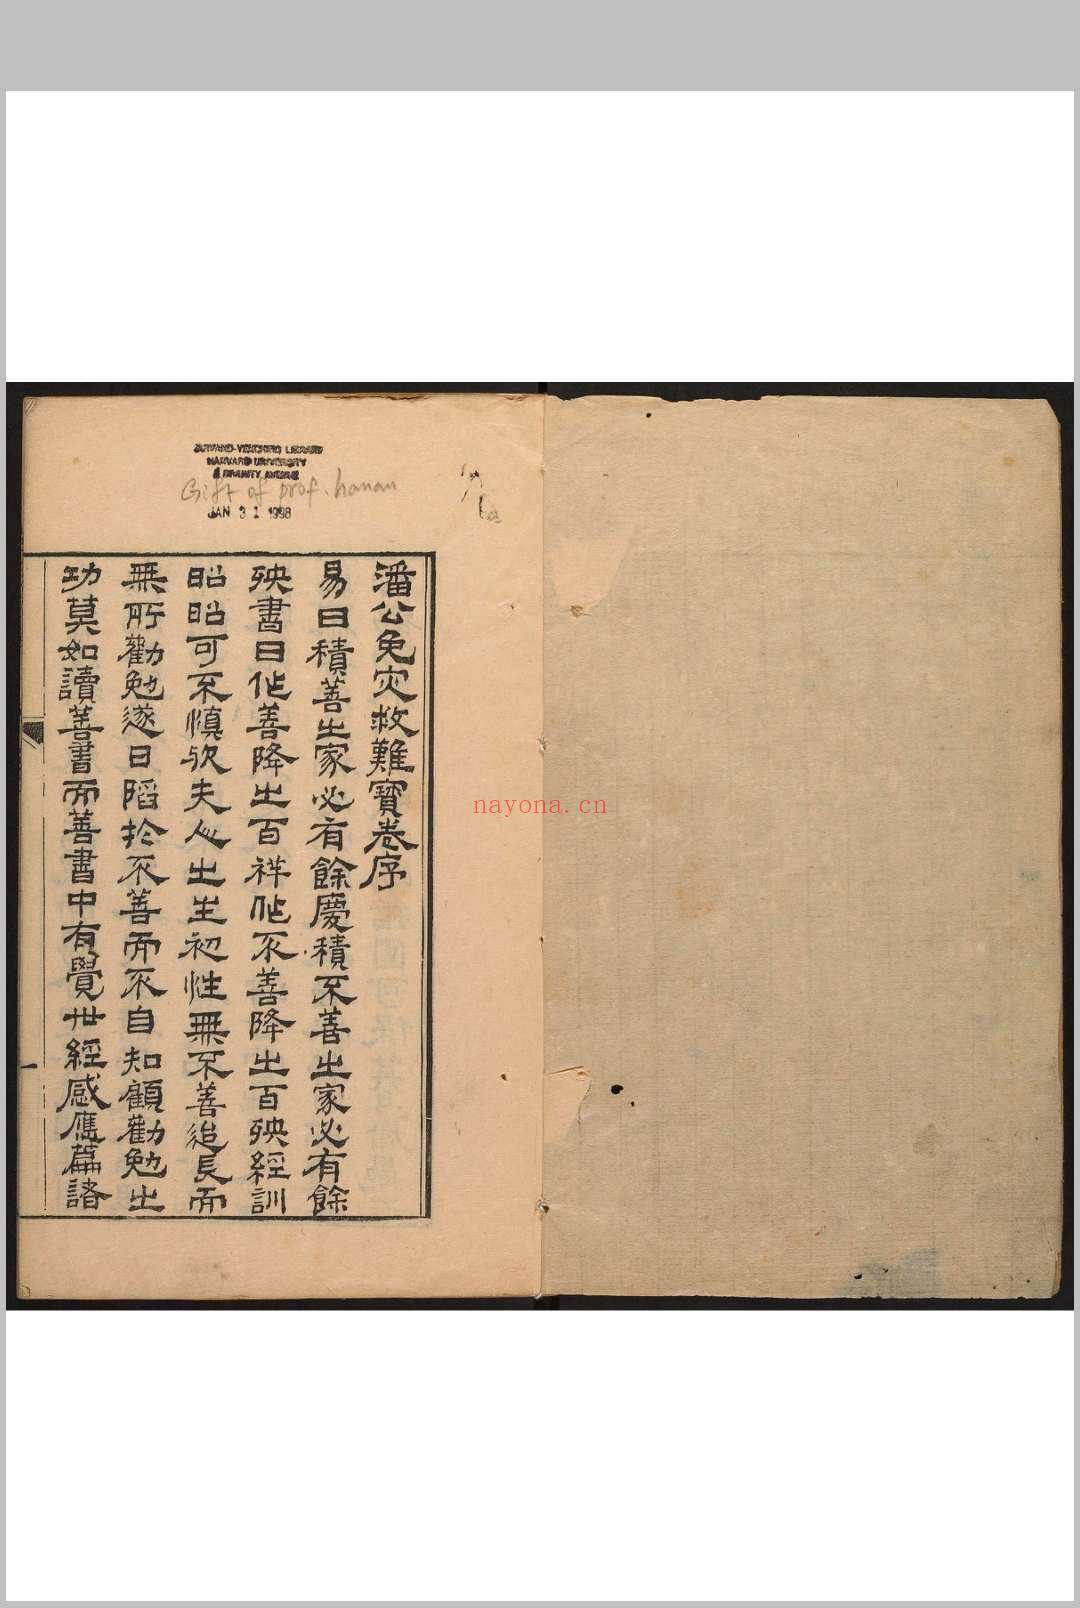 HARVARD-YENCHING LIBRARY
HARVARD UNIVERSITY
2 DIVINITY AVENUE
Gift of prof. hanan
JAN 31 1998
潘公免灾救難寶卷序
易曰積善之家必有餘慶積不善之家必有餘
殃書曰作善降之百祥作不善降之百殃經訓
昭昭可不慎歟夫人之生初性無不善迨長而
無所勸勉遂日陷於不善而不自知顧勸勉之
功莫如讀善書而善書中有覺世經感應篇諸
一
nayona.cn